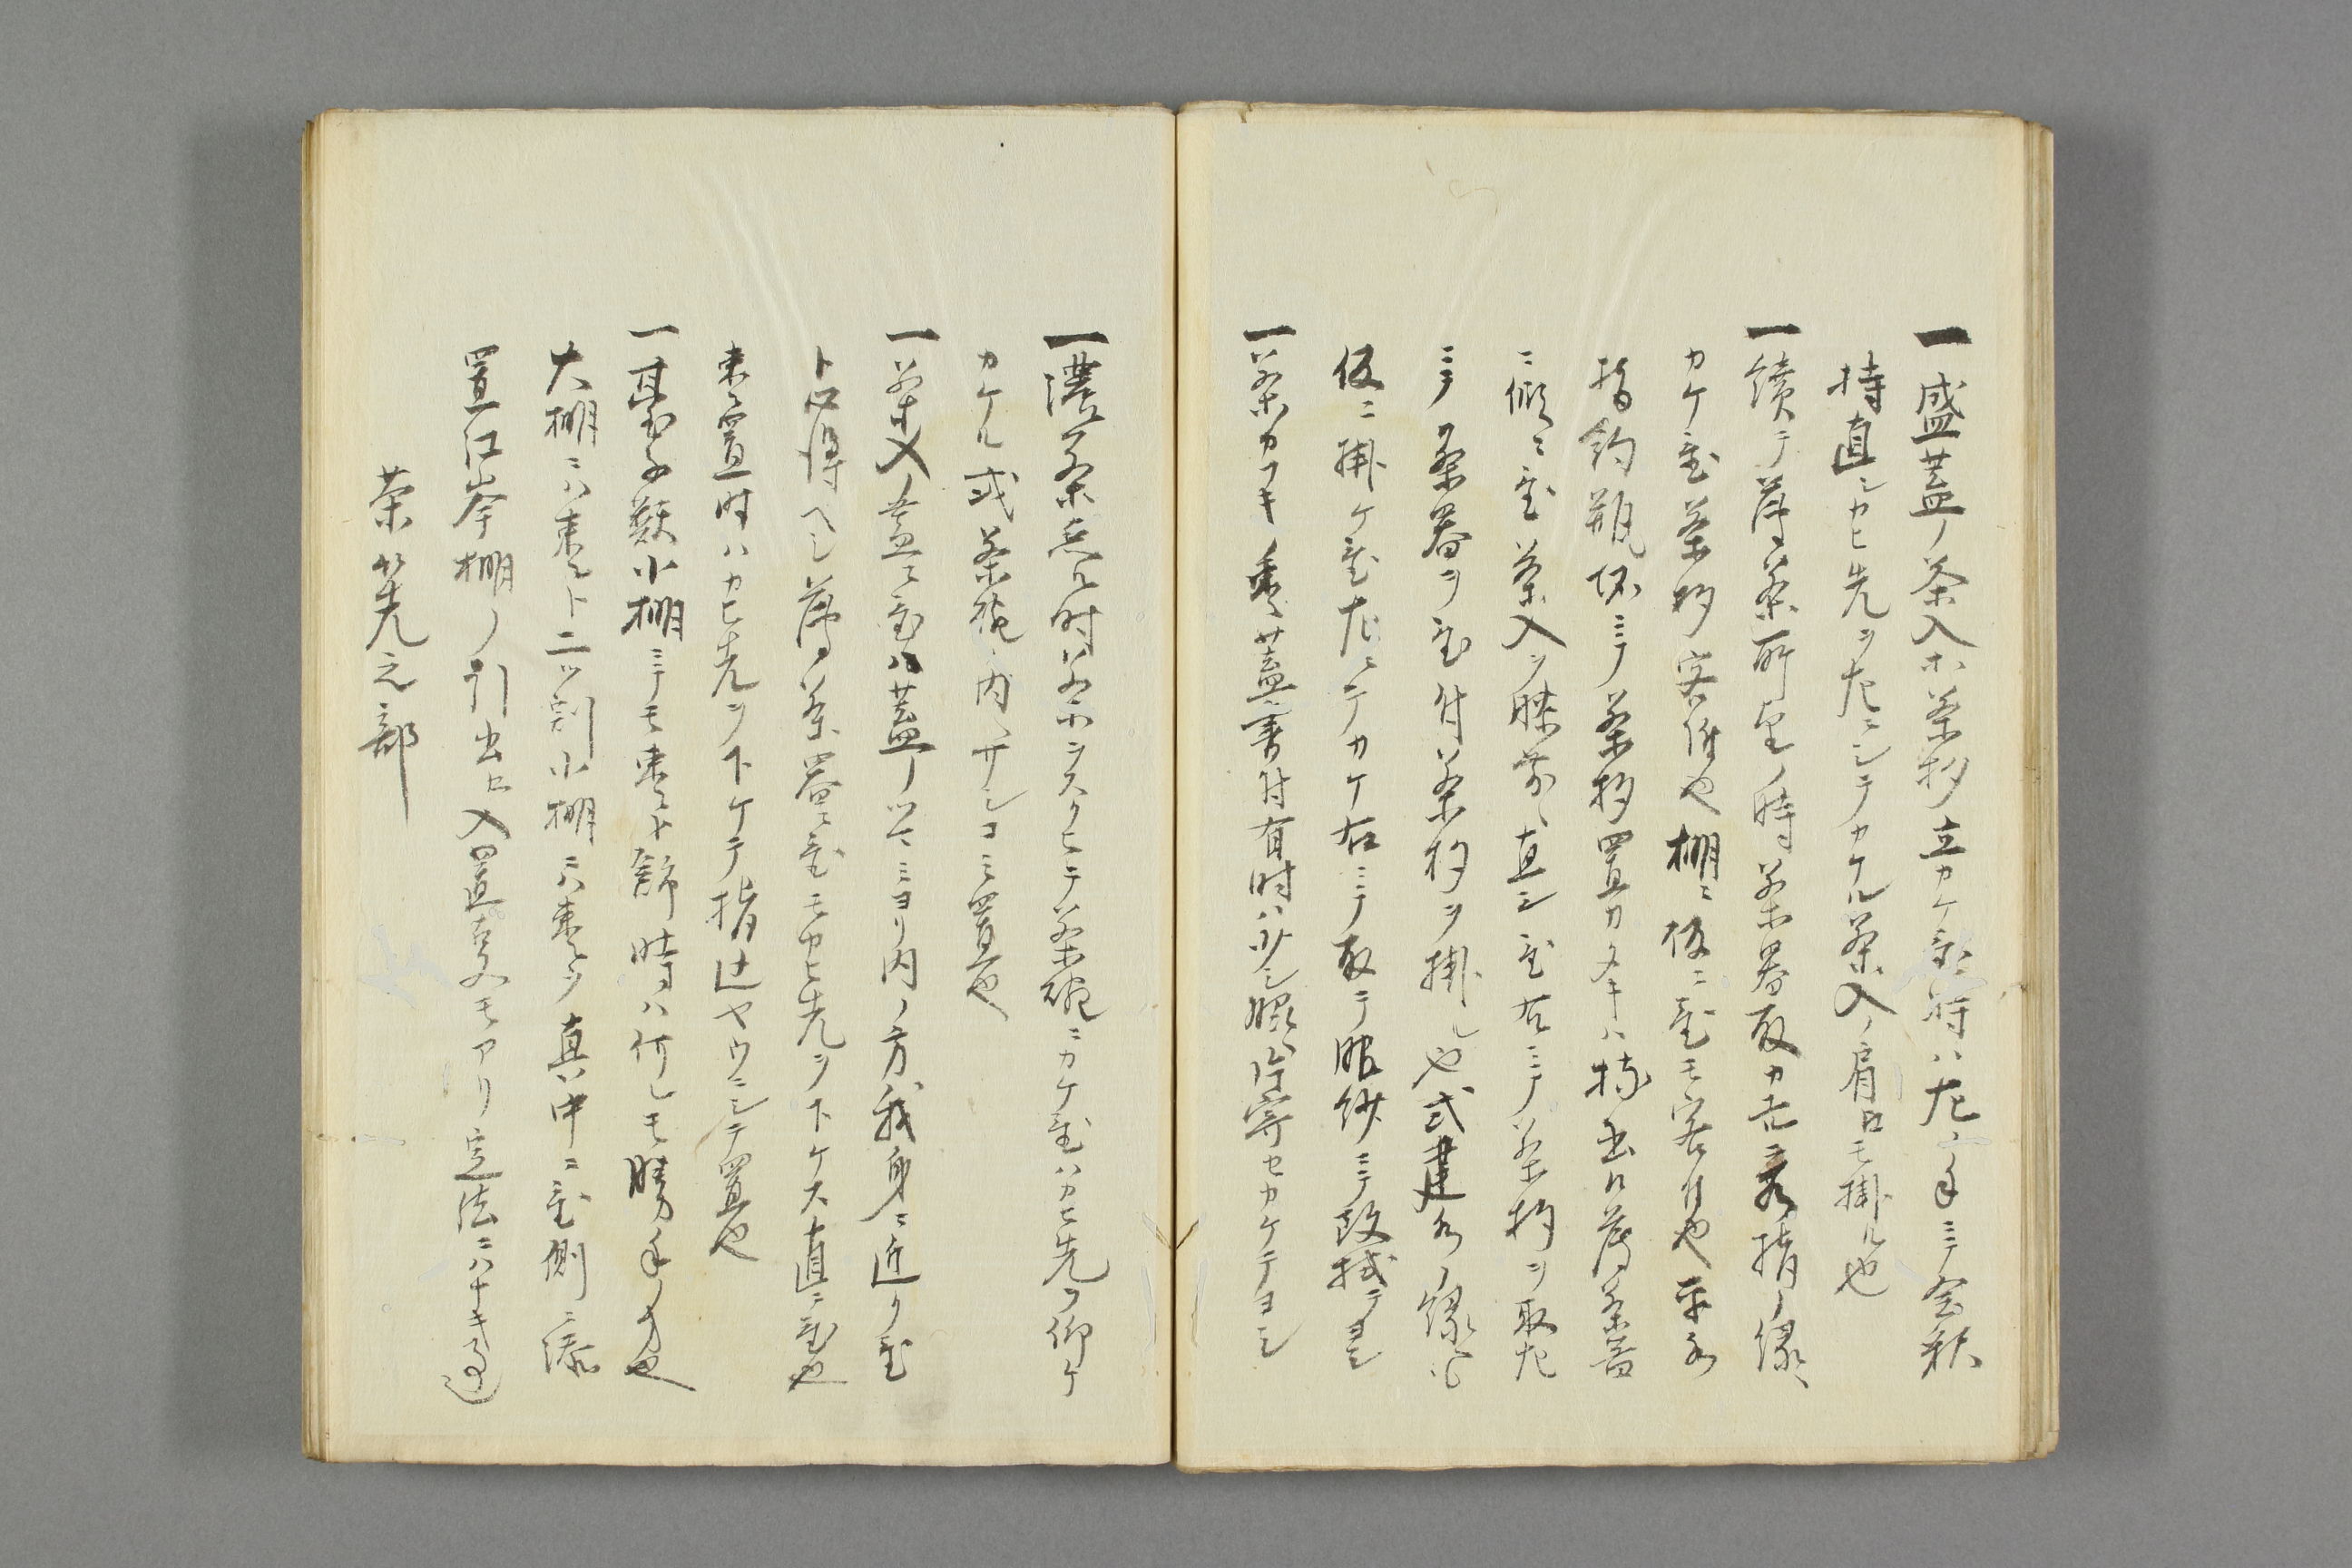 一盛蓋ノ茶入ホ茶杓立カケ置時ハ左ノ手ニテ会釈
持直シカヒ先ヲ左ニシテカケル茶入ノ肩ニモ掛ル也
一續テ薄茶所望ノ時茶器取カ水指ノ縁ヘ
カケ置茶杓客付也棚ニ仮ニ置モ客付也平水
指釣瓶抔ニテ茶杓置カタキハ持出ル薄茶器
ニ傾ニ置茶入ヲ膝前ヘ直シ置右ニテ茶杓ヲ取左
ニテ茶器ヲ置付茶杓ヲ掛ル也或建水ノ縁ニ
仮ニ掛ケ置左ニテカケ右ニテ取テ服紗ニテ改拭テヨシ
一茶カフキノ棗蓋ニ書付有時ハ少シ脇ヘ片寄セカケテヨシ
一濃茶点ル时茶ヲスクヒテ茶碗ニカケ置ハカヒ先ヲ仰ケ
カケル或茶碗ノ内ヘサシコミ置也
一茶入ノ蓋ニ置ハ蓋ノツマミヨリ内ノ方我身ニ近ク置
ト心得ヘシ薄茶器ニ置モカヒ先ヲ下ケス直ニ置也
棗ニ置時ハカヒ先ヲ下ケテ指込ヤウニシテ置也
一臺子類小棚ニテモ棗ト飾時ハ何レモ勝手ノ方也
大棚ニハ棗ト二ツ割小棚ニハ棗ヲ真中ニ置側ニ添
置江岑棚ノ引出ニ入置事モアリ定法ニハナキ事也
茶筅之部